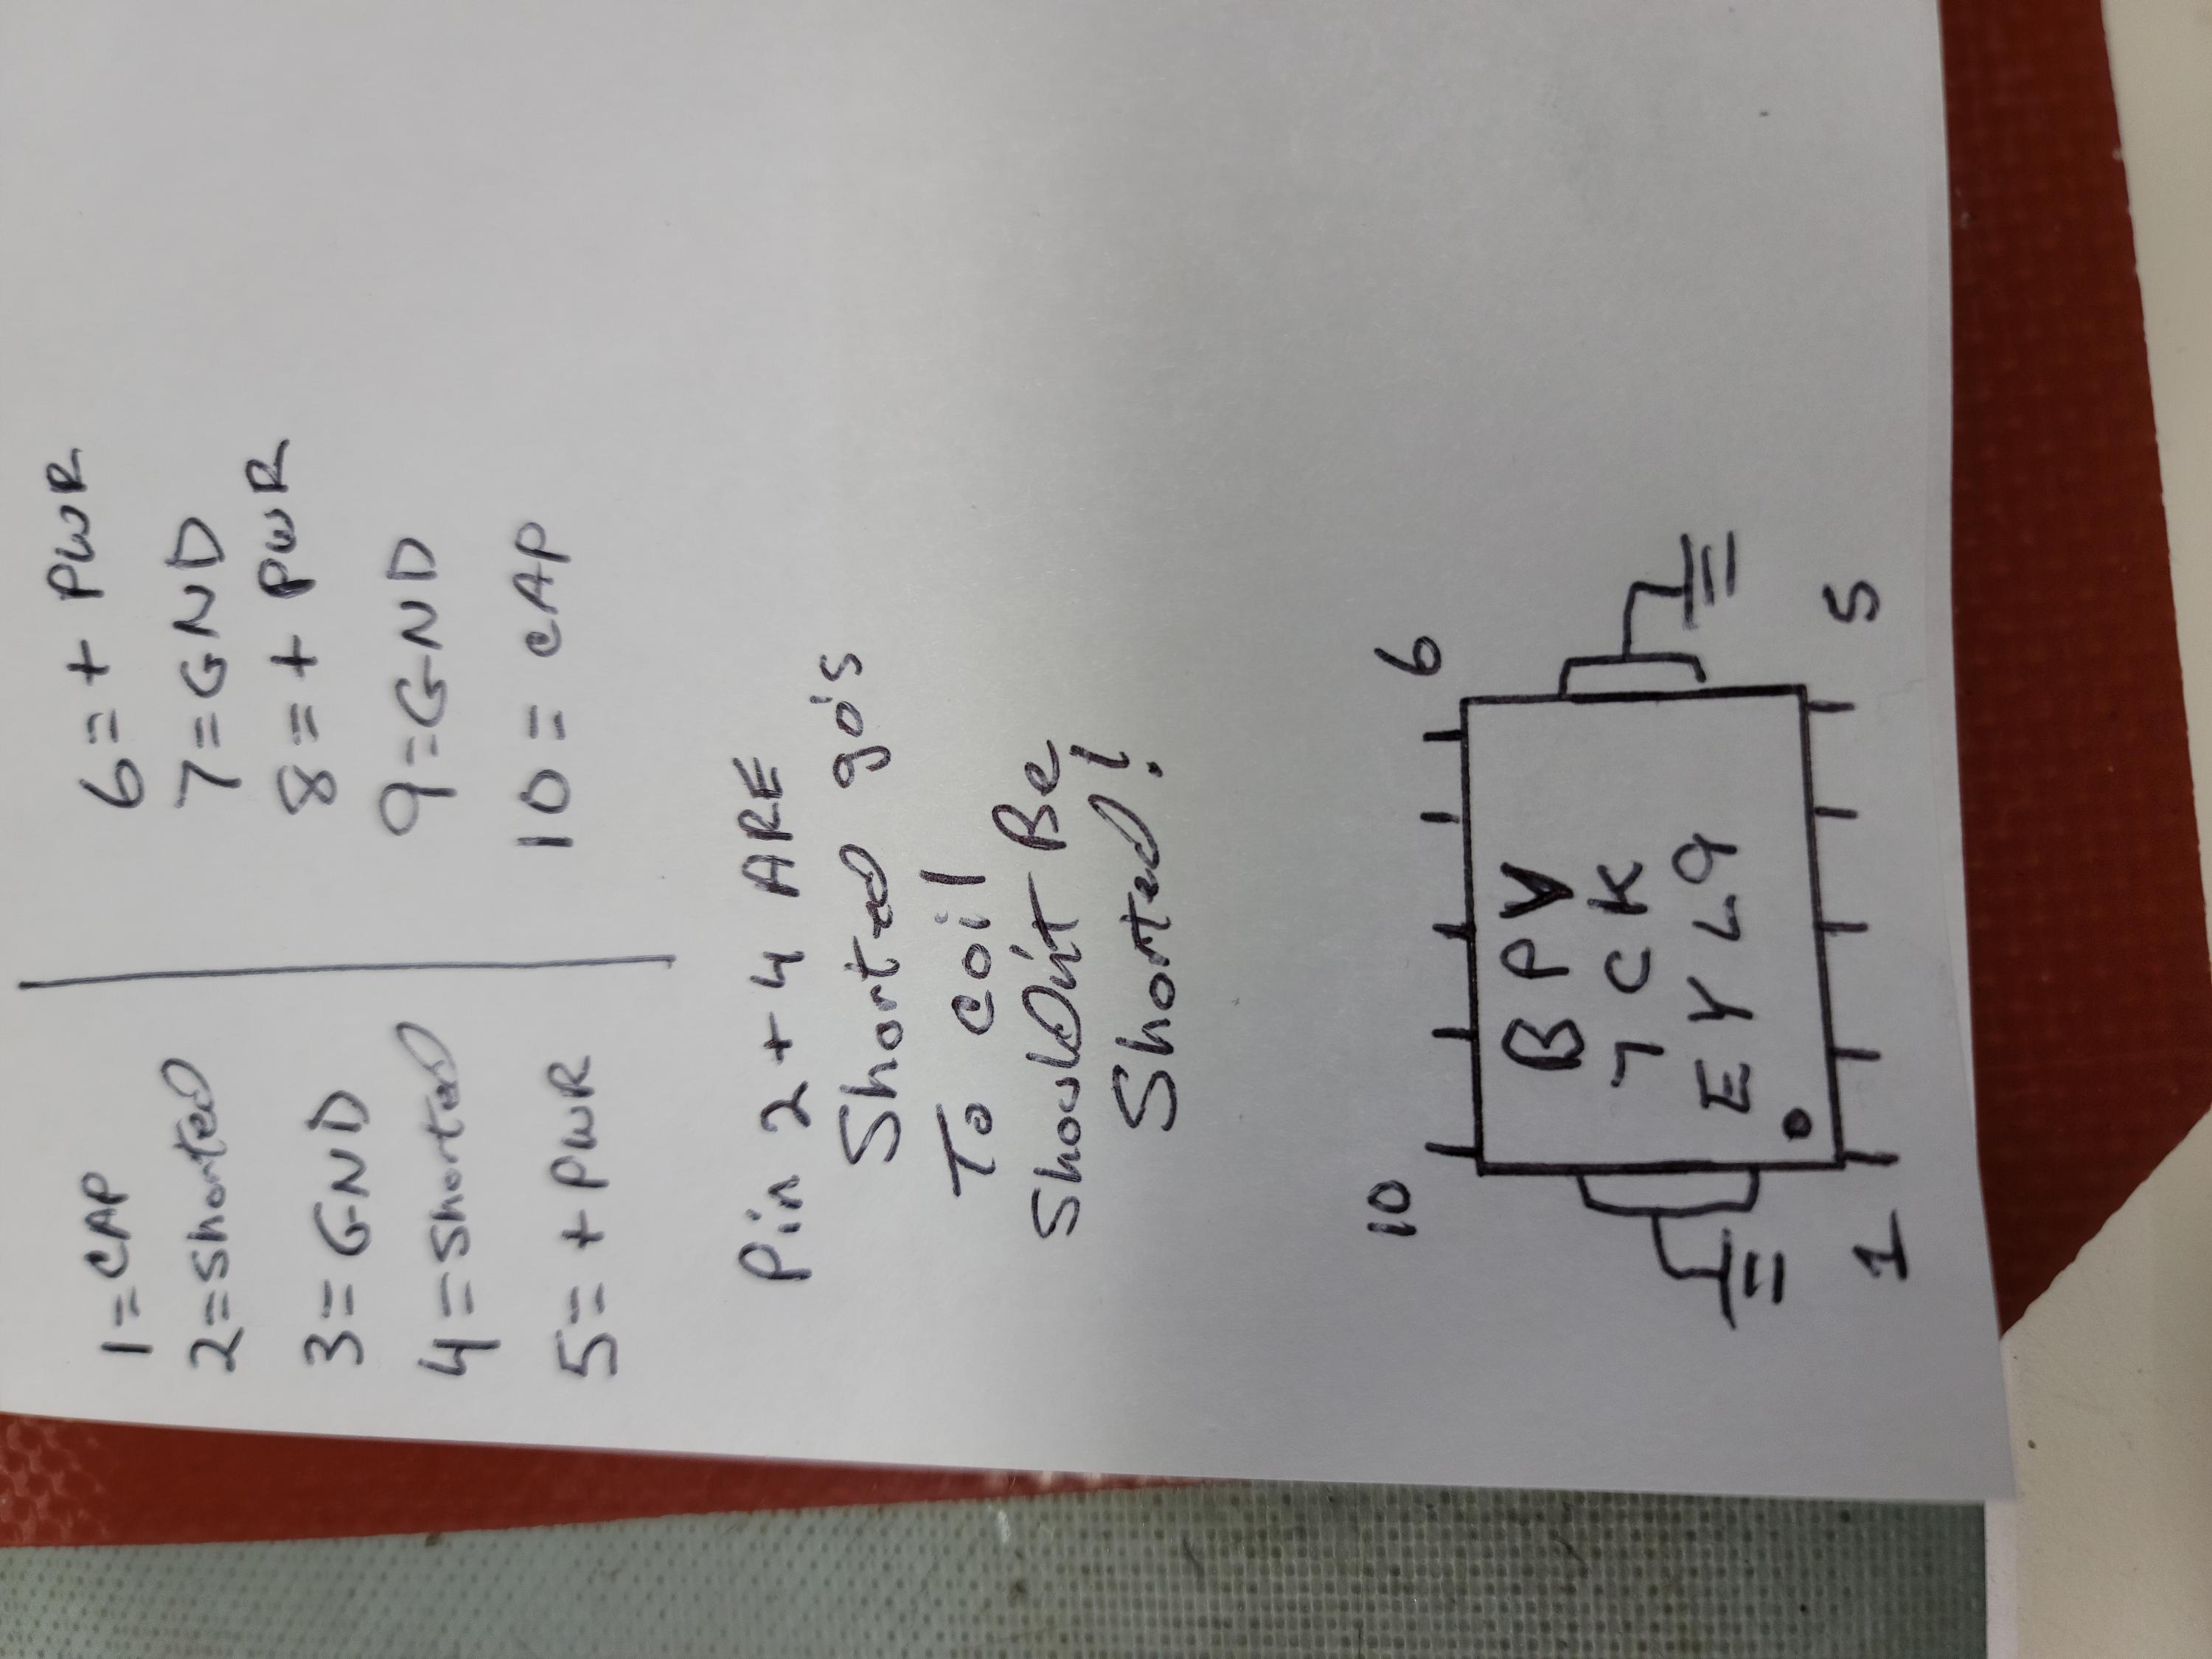 1=CAP
2=Shorted
3=GND
4=Shorted
5=+PWR
6=+PWR
7=GND
8=+PWR
9=GND
10=CAP
Pin 2+4 ARE
Shorted go's
To coil
Shouldn't Be
Shorted!
10
6
BPV
7CK
EYL9
1
5